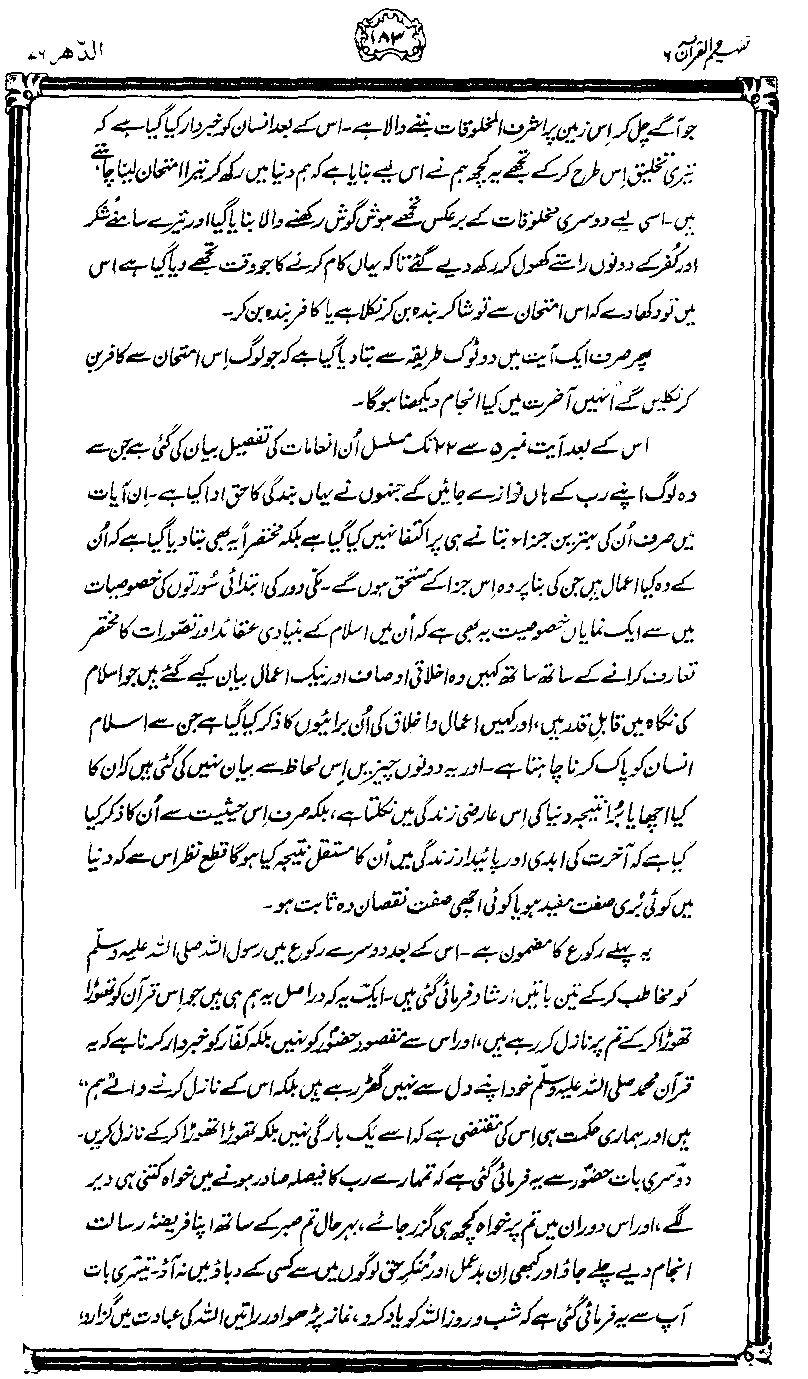 تفہیم القرآن ۶
۱۸۳
الدّھر ۷۶
جو آگے چل کر اِس زمین پر اشرف المخلوقات بننے والا ہے۔ اس کے بعد انسان کو خبردار کیا گیا ہے کہ
تیری تخلیق اِس طرح کر کے تجھے یہ کچھ ہم نے اس لیے بنایا ہے کہ ہم دنیا میں رکھ کر تیرا امتحان لینا چاہتے
ہیں۔ اسی لیے دوسری مخلوقات کے برعکس تجھے ہوش گوش رکھنے والا بنایا گیا اور تیرے سامنے شکر
اور کُفر کے دونوں راستے کھول کر رکھ دیے گئے تاکہ یہاں کام کرنے کا جو وقت تجھے دیا گیا ہے اس
میں تو دکھا دے کہ اس امتحان سے تو شاکر بندہ بن کر نکلا ہے یا کافر بندہ بن کر۔
پھر صرف ایک آیت میں دو ٹوک طریقہ سے بتا دیا گیا ہے کہ جو لوگ اِس امتحان سے کافر بن
کر نکلیں گے اُنہیں آخرت میں کیا انجام دیکھنا ہوگا۔
اس کے بعد آیت نمبر ۵ سے ۲۲ تک مسلسل اُن انعامات کی تفصیل بیان کی گئی ہے جن سے
وہ لوگ اپنے رب کے ہاں نوازے جائیں گے جنہوں نے یہاں بندگی کا حق ادا کیا ہے۔ اِن آیات
میں صرف اُن کی بہترین جزاء بتانے ہی پر اکتفا نہیں کیا گیا ہے بلکہ مختصراً یہ بھی بتا دیا گیا ہے کہ اُن
کے وہ کیا اعمال ہیں جن کی بنا پر وہ اِس جزا کے مستحق ہوں گے۔ مکی دور کی ابتدائی سُورتوں کی خصوصیات
میں سے ایک نمایاں خصوصیت یہ بھی ہے کہ اُن میں اسلام کے بنیادی عقائد اور تصورات کا مختصر
تعارف کرانے کے ساتھ ساتھ کہیں وہ اخلاقی اوصاف اور نیک اعمال بیان کیے گئے ہیں جو اسلام
کی نگاہ میں قابلِ قدر ہیں، اور کہیں اعمال و اخلاق کی اُن برائیوں کا ذکر کیا گیا ہے جن سے اسلام
انسان کو پاک کرنا چاہتا ہے۔ اور یہ دونوں چیزیں اِس لحاظ سے بیان نہیں کی گئی ہیں کہ ان کا
کیا اچھا یا بُرا نتیجہ دنیا کی اِس عارضی زندگی میں نکلتا ہے، بلکہ صرف اِس حیثیت سے اُن کا ذکر کیا
گیا ہے کہ آخرت کی ابدی اور پائیدار زندگی میں اُن کا مستقل نتیجہ کیا ہوگا قطع نظر اس سے کہ دنیا
میں کوئی بُری صفت مفید ہو یا کوئی اچھی صفت نقصان دہ ثابت ہو۔
یہ پہلے رکوع کا مضمون ہے۔ اس کے بعد دوسرے رکوع میں رسول اللہ صلی اللہ علیہ وسلّم
کو مخاطب کر کے تین باتیں ارشاد فرمائی گئی ہیں۔ ایک یہ کہ دراصل یہ ہم ہی ہیں جو اِس قرآن کو تھوڑا
تھوڑا کر کے تم پر نازل کر رہے ہیں، اور اس سے مقصود حضورؐ کو نہیں بلکہ کفّار کو خبردار کرنا ہے کہ یہ
قرآن محمد صلی اللہ علیہ وسلّم خود اپنے دل سے نہیں گھڑ رہے ہیں بلکہ اس کے نازل کرنے والے "ہم"
ہیں اور ہماری حکمت ہی اِس کی مقتضی ہے کہ اسے یک بارگی نہیں بلکہ تھوڑا تھوڑا کر کے نازل کریں۔
دوسری بات حضورؐ سے یہ فرمائی گئی ہے کہ تمہارے رب کا فیصلہ صادر ہونے میں خواہ کتنی ہی دیر
لگے، اور اس دوران میں تم پر خواہ کچھ ہی گزر جائے، بہرحال تم صبر کے ساتھ اپنا فریضۂ رسالت
انجام دیے چلے جاؤ اور کبھی اِن بد عمل اور مُنکرِ حق لوگوں میں سے کسی کے دباؤ میں نہ آؤ۔ تیسری بات
آپ سے یہ فرمائی گئی ہے کہ شب و روز اللہ کو یاد کرو، نماز پڑھو اور راتیں اللہ کی عبادت میں گزارو،